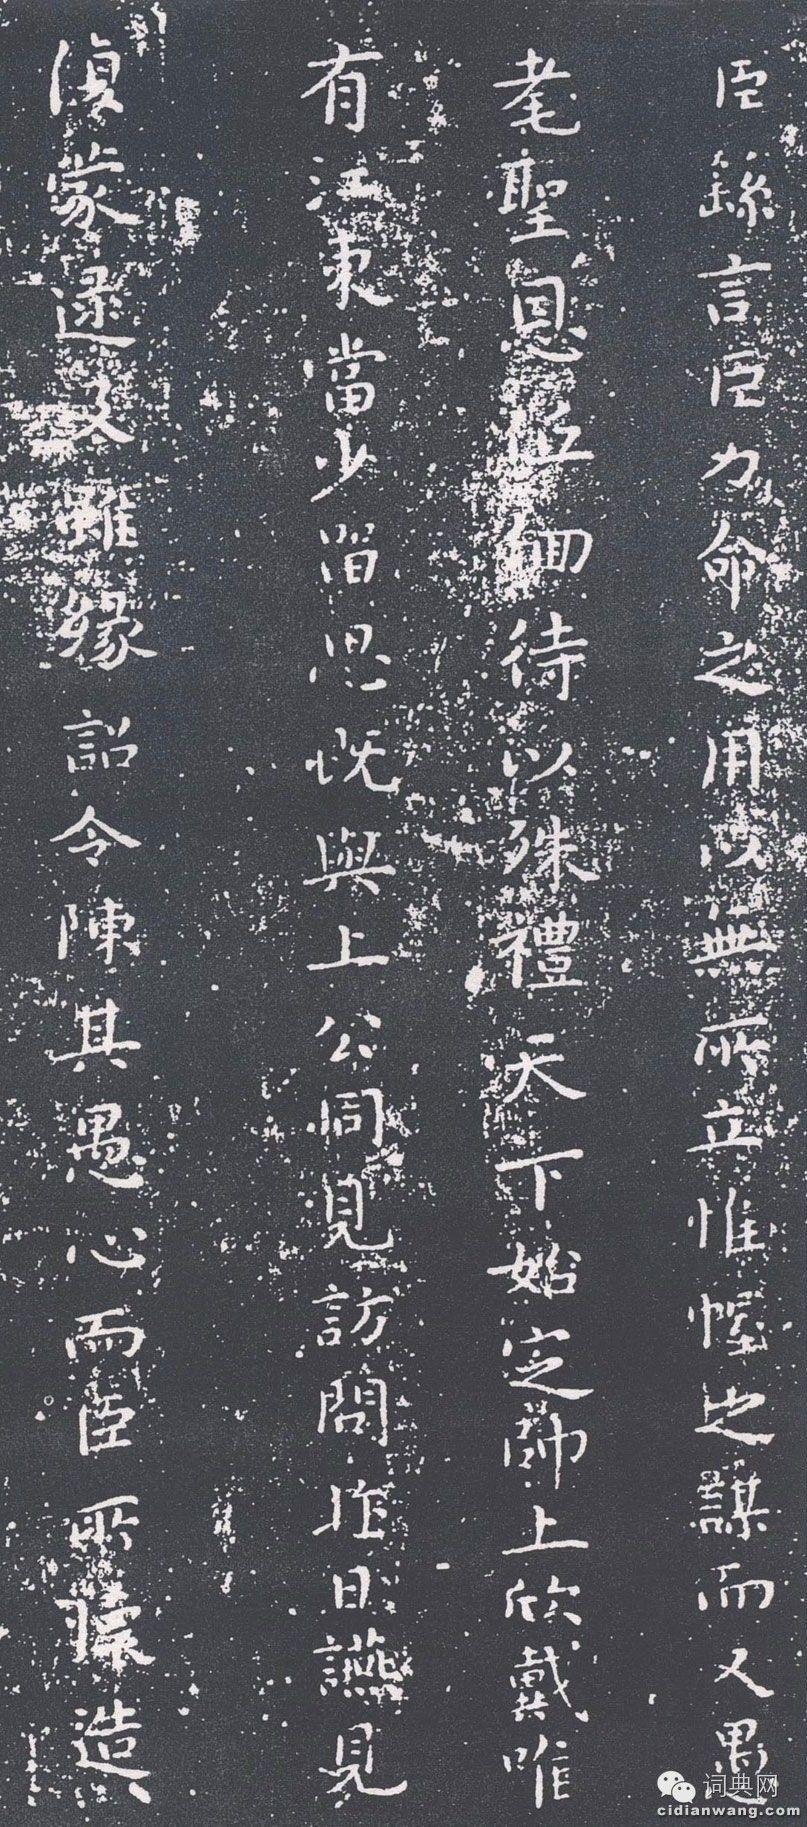 臣繇言臣力命之用以無所立惟幄之謀而又愚
耄聖恩低佪待以殊禮天下始定師上欣戴唯
有江東當少留思既與上公同見訪問昨日讌見
復蒙逮及雖緣詔令陳其愚心而臣所懷造
词典网
cidianwang.com